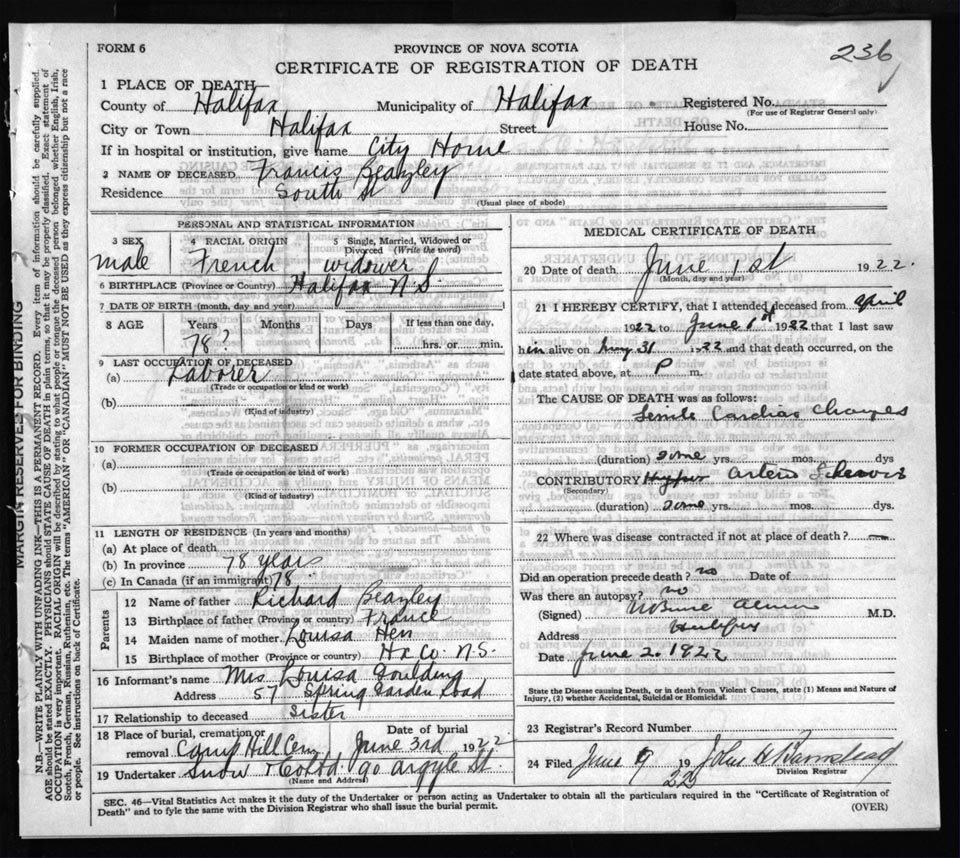 236
FORM 6
PROVINCE OF NOVA SCOTIA
CERTIFICATE OF REGISTRATION OF DEATH
1 PLACE OF DEATH—
County of Halifax Municipality of Halifax Registered No.
(For use of Registrar General only)
City or Town Halifax Street House No.
If in hospital or institution, give name City Home
2 NAME OF DECEASED Francis Beazley
Residence South St
(Usual place of abode)
PERSONAL AND STATISTICAL INFORMATION
3 SEX 4 RACIAL ORIGIN 5 Single, Married, Widowed or Divorced (Write the word)
male French widower
6 BIRTHPLACE (Province or Country) Halifax N.S.
7 DATE OF BIRTH (month, day and year)
8 AGE Years Months Days If less than one day,
78? hrs. or min.
9 LAST OCCUPATION OF DECEASED
(a) Laborer
(Trade or occupation or kind or work)
(b)
(Kind of industry)
10 FORMER OCCUPATION OF DECEASED
(a)
(Trade or occupation or kind of work)
(b)
(Kind of industry)
11 LENGTH OF RESIDENCE (In years and months)
(a) At place of death
(b) In province 78 years
(c) In Canada (if an immigrant) 78
Parents
12 Name of father Richard Beazley
13 Birthplace of father (Province or country) France
14 Maiden name of mother Louisa
15 Birthplace of mother (Province or country) Hx Co. N.S.
16 Informant's name Mrs Louisa Goulding
Address 57 Spring Garden Road
17 Relationship to deceased Sister
18 Place of burial, cremation or removal Camp Hill Cem Date of burial June 3rd 1922
19 Undertaker Snow & Co Ltd 90 Argyle St.
(Name and Address)
MEDICAL CERTIFICATE OF DEATH
20 Date of death June 1st 1922.
(Month, day and year)
21 I HEREBY CERTIFY, that I attended deceased from April
1922 to June 1st 1922 that I last saw
him alive on May 31 1922 and that death occurred, on the
date stated above, at P m.
The CAUSE OF DEATH was as follows:
Senile Cardiac Changes
(duration) some yrs. mos. dys
CONTRIBUTORY Arterio Sclerosis
(Secondary)
(duration) some yrs. mos. dys.
22 Where was disease contracted if not at place of death?
Did an operation precede death? no Date of
Was there an autopsy? no
(Signed) M.D.
Address Halifax
Date June 2. 1922
State the Disease causing Death, or in death from Violent Causes, state (1) Means and Nature of
Injury, (2) whether Accidental, Suicidal or Homicidal.
23 Registrar's Record Number
24 Filed June 9 1922 John H Barnstead
Division Registrar
SEC. 46—Vital Statistics Act makes it the duty of the Undertaker or person acting as Undertaker to obtain all the particulars required in the "Certificate of Registration of
Death" and to fyle the same with the Division Registrar who shall issue the burial permit. (OVER)
MARGIN RESERVED FOR BINDING
N.B.—WRITE PLAINLY WITH UNFADING INK—THIS IS A PERMANENT RECORD. Every item of information should be carefully supplied.
AGE should be stated EXACTLY. PHYSICIANS should STATE CAUSE OF DEATH in plain terms, so that it may be properly classified. Exact statement of
OCCUPATION is very important. RACIAL ORIGIN will be described by stating to what people or tongue the deceased person belonged whether English, Irish,
Scotch, French, German, Russian, Ruthenian, etc. The terms "AMERICAN" OR "CANADIAN" MUST NOT BE USED as they express citizenship but not a race
or people. See instructions on back of Certificate.